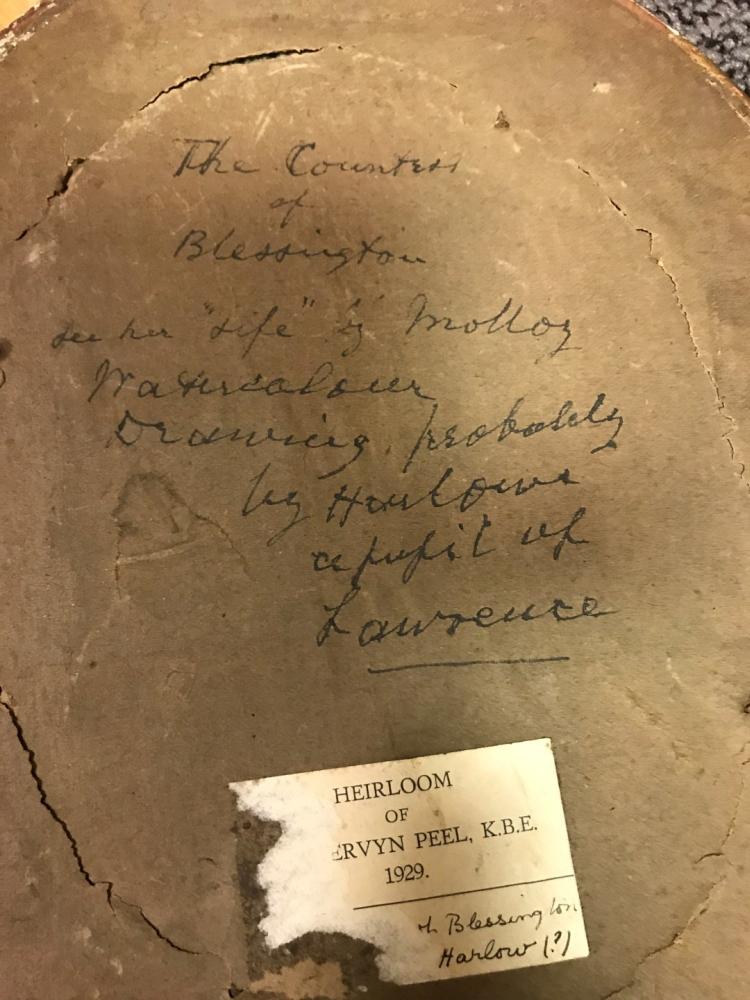 The Countess
of
Blessington
see her "Life" by Molloy
Watercolour
Drawing probably
by Harlowe
a pupil of
Lawrence
HEIRLOOM
OF
ERVYN PEEL, K.B.E.
1929.
Blessington
Harlow (?)